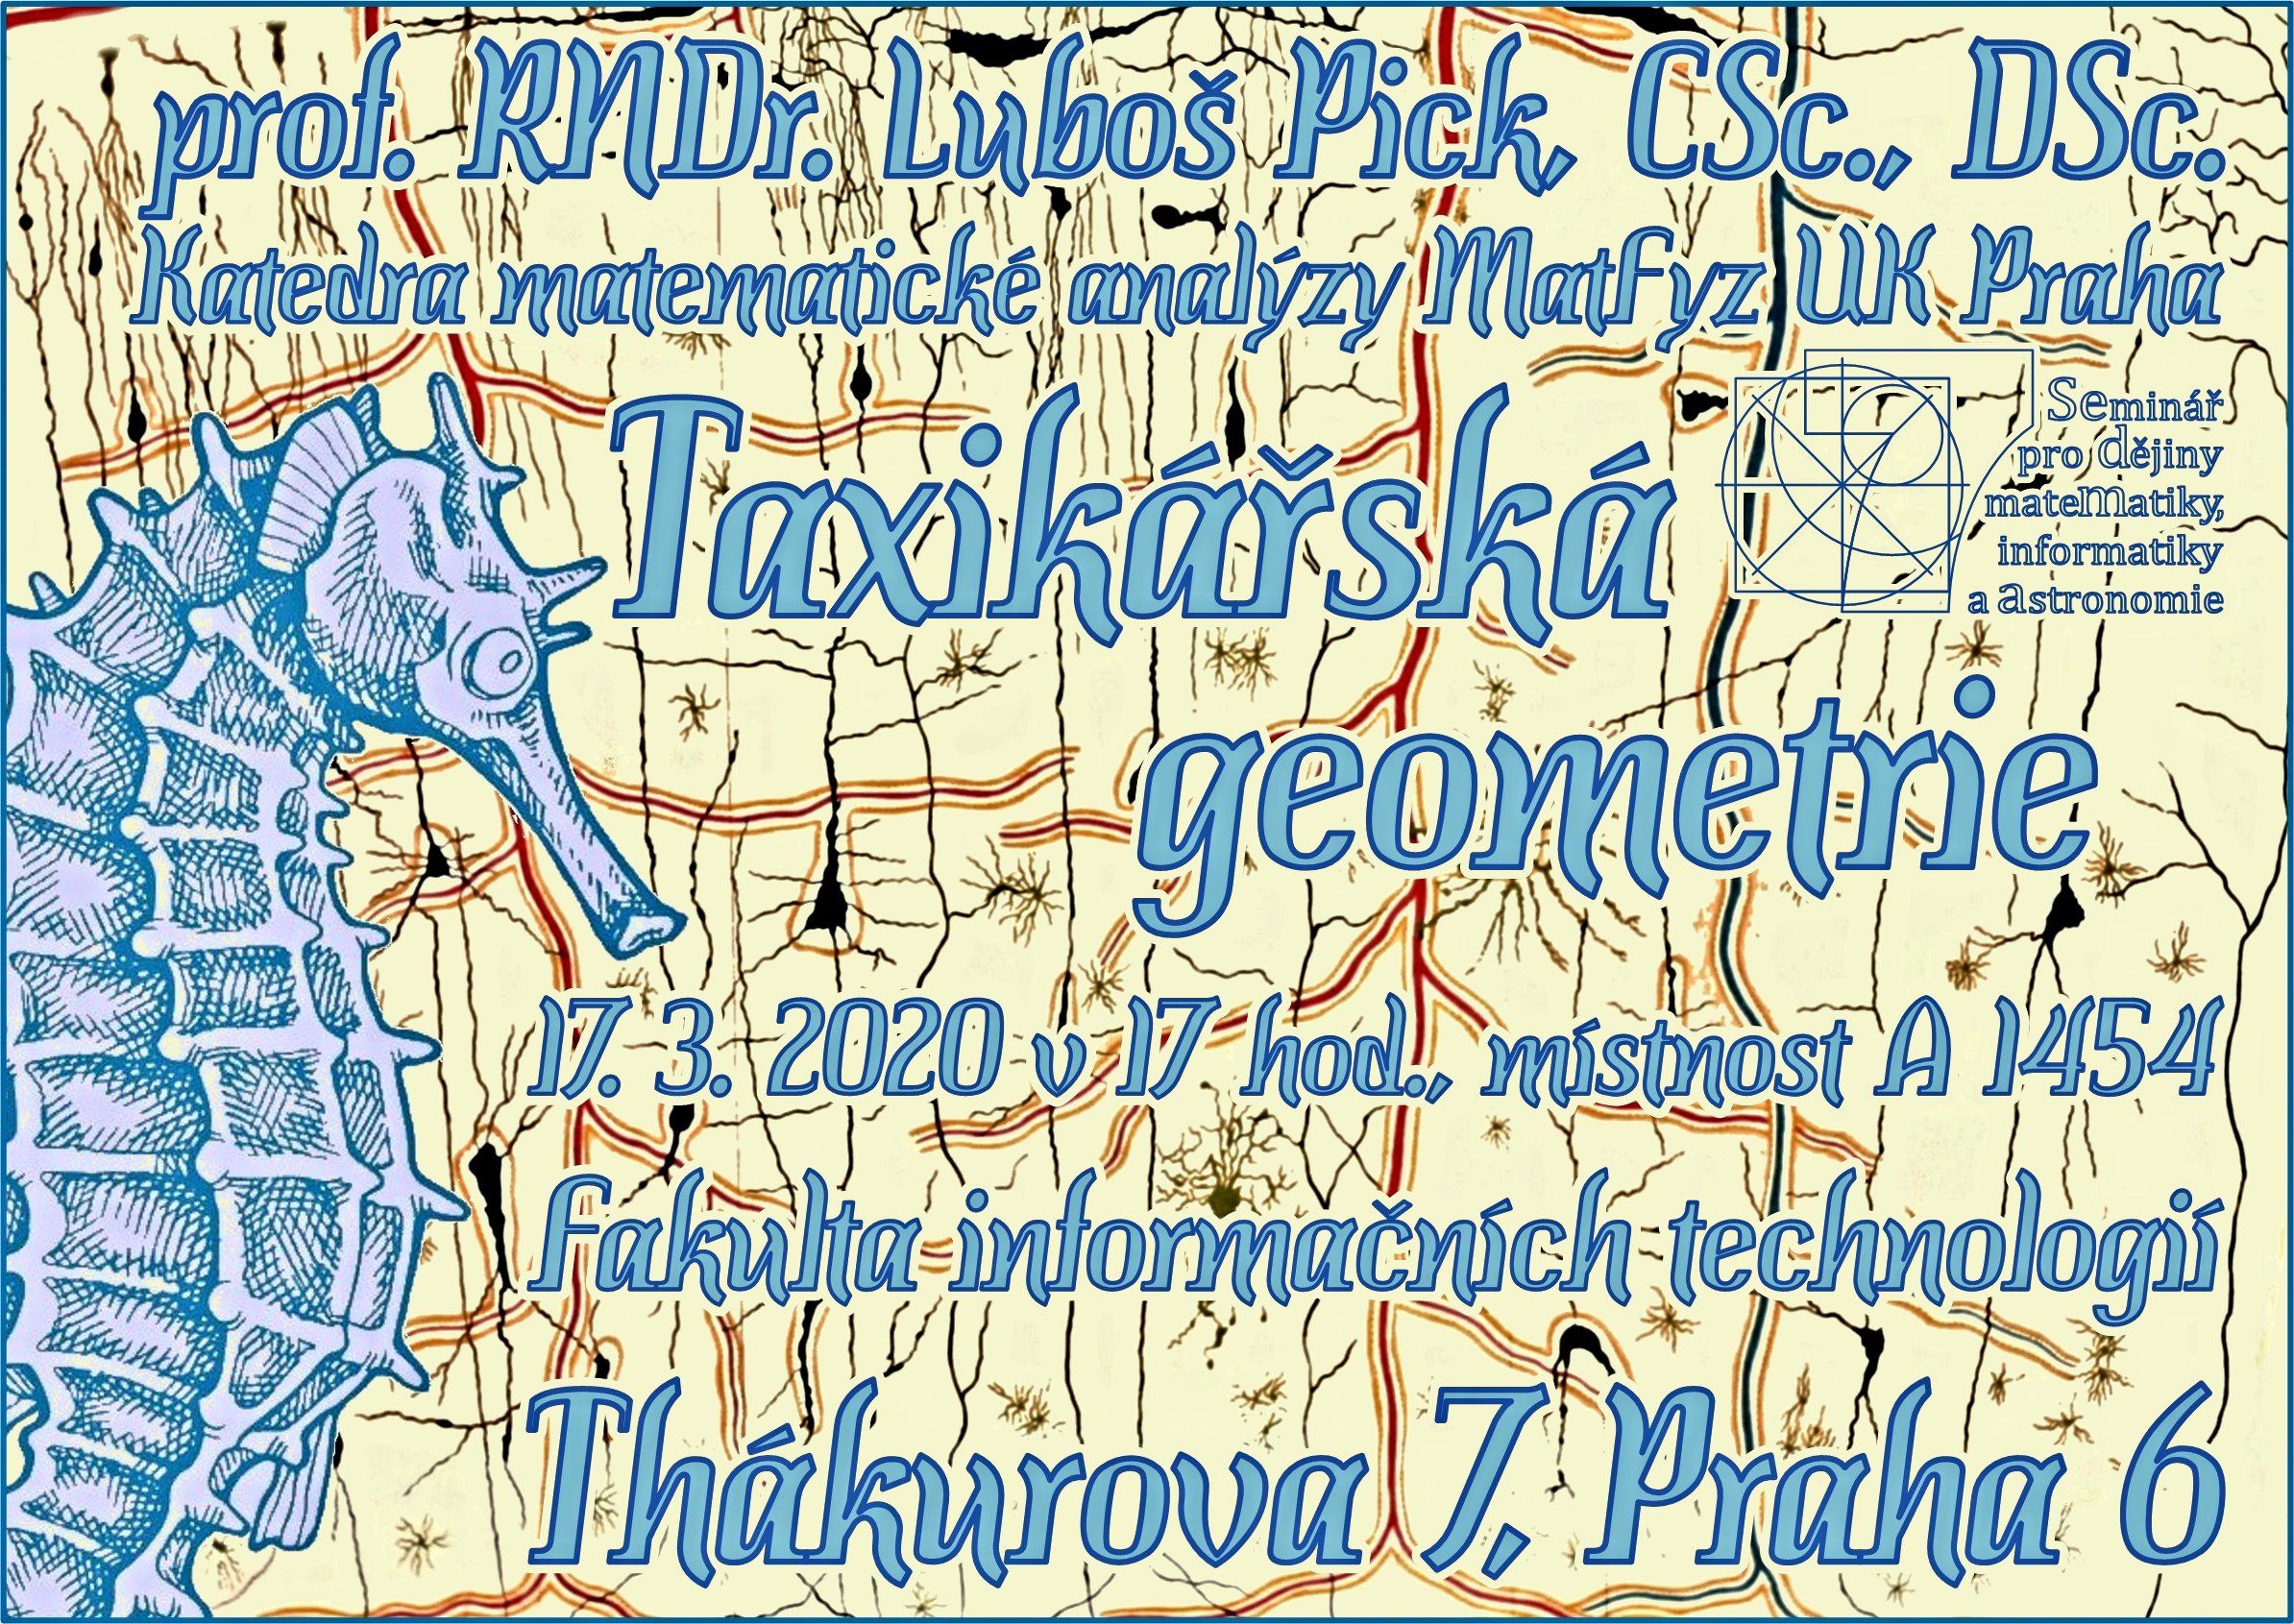 prof. RNDr. Luboš Pick, CSc., DSc.
Katedra matematické analýzy MatFyz UK Praha
Taxikářská
geometrie
Seminář
pro dějiny
mateMatiky,
informatiky
a astronomie
17. 3. 2020 v 17 hod., místnost A 1454
Fakulta informačních technologií
Thákurova 7, Praha 6